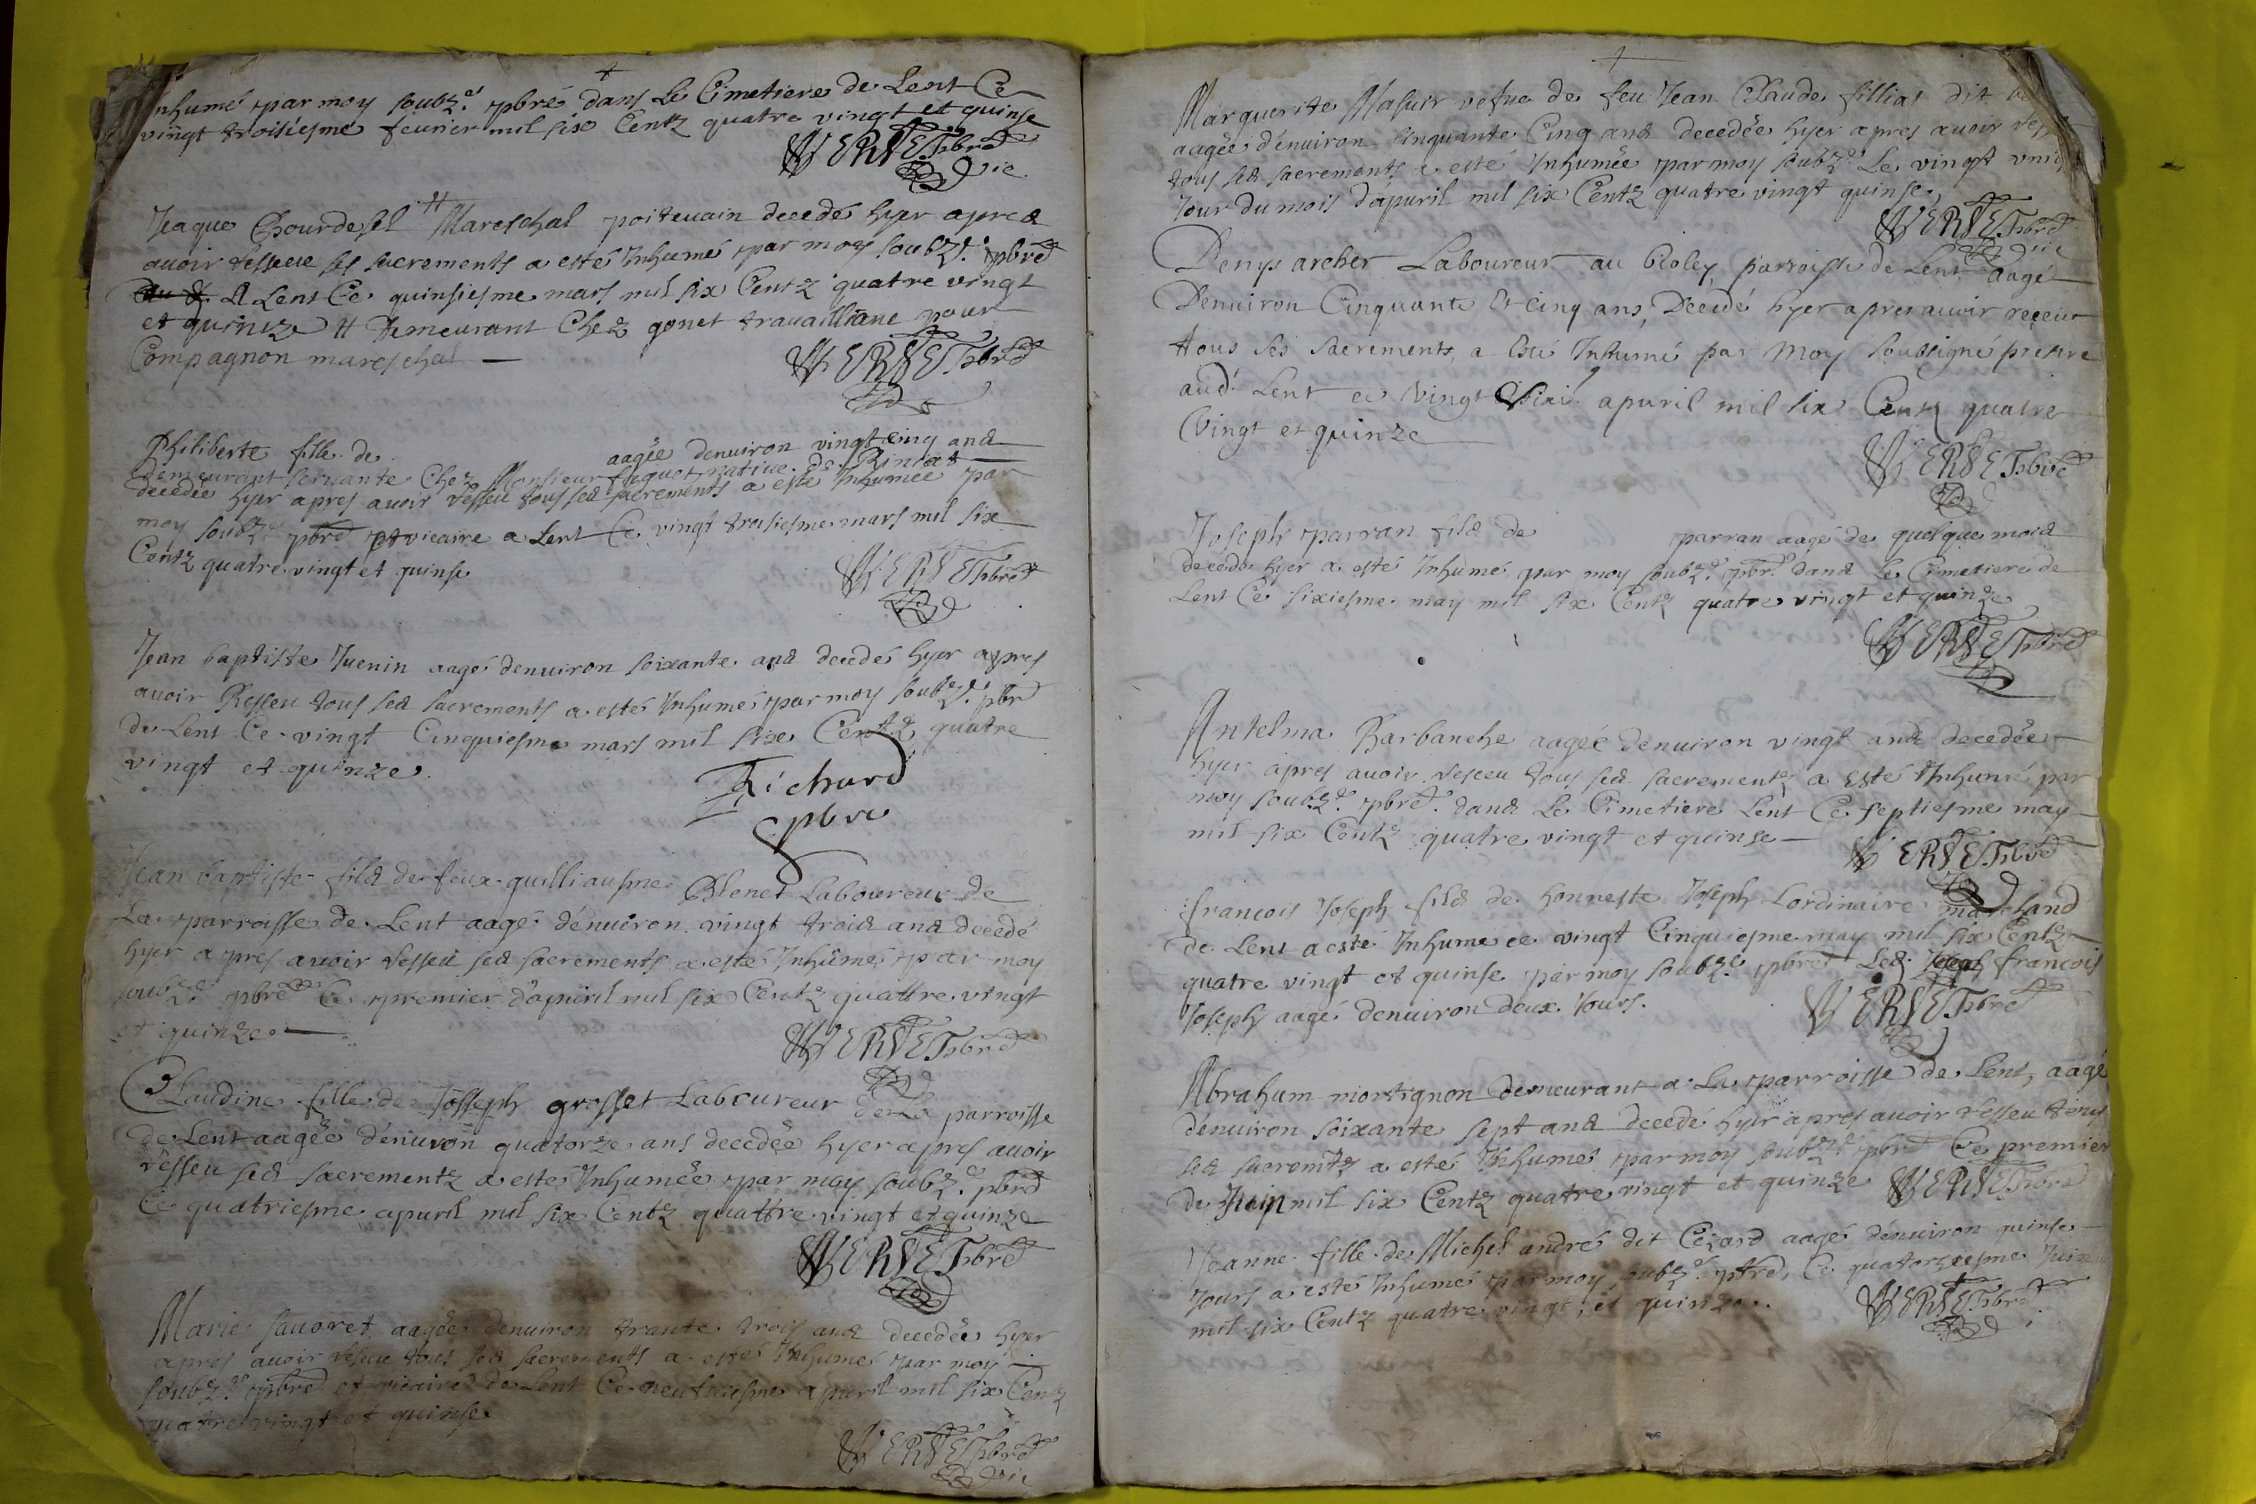 Inhumé par moy soubz.é pbré dans le Cimetiere de Lent Ce
vingt troisiesme feurier mil six Centz quatre vingt et quinse
VERNET pbré
vic
Jaque Bourdesel # Mareschal poiteuain decedé hyer apres
auoir resseu ses sacrements a esté Inhumé par moy soubz.é pbré
A Lent Ce quinsiesme mars mil six Centz quatre vingt
et quinze # Demeurant Chez gonet trauailliant pour
Compagnon mareschal
VERNET pbré
Philiberte fille de aagée denuiron vingt cinq ans
Demeurant seruante Chez Monsieur natiue de
decedée hyer apres auoir resseu tous ses sacrements a esté Inhumée par
moy soubz.é pbré et vicaire a Lent Ce vingt troisiesme mars mil six
Centz quatre vingt et quinse
VERNET pbré
Jean baptiste Juenin aagé denuiron soixante ans decedé hyer apres
auoir Resseu tous ses sacrements a esté Inhumé par moy soubz.é pbr
de Lent Ce vingt Cinquiesme mars mil six Centz quatre
vingt et quinze
Richard
pbre
Jean baptiste fils de feux guilliausme Blenet Laboureur de
La parroisse de Lent aagé dénuiron vingt trois ans decedé
hyer apres auoir resseu ses sacrements a esté Inhumé par moy
soubz.é pbré Ce premier d'apuril mil six Centz quattre vingt
et quinze
VERNET pbré
Claudine fille de Josseph grosset Laboureur de La parroisse
de Lent aagée dénuiron quatorze ans decedée hyer apres auoir
resseu ses sacrementz a esté Inhumée par moy soubz.é pbré
Ce quatriesme apuril mil six Centz quattre vingt et quinze
VERNET pbré
Marie sauoret aagée denuiron trante trois ans decedée hyer
apres auoir reseu tous ses sacrements a esté Inhumé par moy
soubz.é pbré et vicaire de Lent Ce neufuiesme apuril mil six Centz
quatre vingt et quinse
VERNET pbré
vic
Marguerite Masuir vefue de feu Jean Claude filliat dit
aagée d'enuiron sinquante Cinq ans decedée hyer apres auoir
tous ses sacrements a esté Inhumée par moy soubz.é Le vingt
Jour du mois d'apuril mil six Centz quatre vingt quinse
VERNET pbré
vic
Denys archer Laboureur au Roley parroisse de Lent aagé
Denuiron Cinquante et Cinq ans, Décédé hyer apres auoir receu
tous ses sacrements, a esté Inhumé par Moy soubsigné prestre
aud. Lent ce Vingt apuril mil six Centz quatre
Vingt et quinze
VERNET pbré
Joseph parran fils de parran aagé de quelque mois
decedé hyer a esté Inhumé par moy soubz.é pbr.é dans le Cimetiere de
Lent Ce sixiesme may mil six Centz quatre vingt et quinze
VERNET pbré
Antelma Barbanche aagée denuiron vingt ans decedée
hyer apres auoir resceu tous ses sacrementz a esté Inhumé par
moy soubz.é pbré dans le Cimetiere Lent Ce septiesme may
mil six Centz quatre vingt et quinse
VERNET pbré
francois Joseph fils de honneste Joseph Lordinaire marchand
de Lent a esté Inhumé ce vingt Cinquiesme may mil six Centz
quatre vingt et quinse par moy soubz.é pbré Led. francois
Joseph aagé denuiron deux Jours.
VERNET pbré
Abraham mortignon demeurant a La parroisse de Lent, aagé
dénuiron soixante sept ans decedé hyer apres auoir resseu tous
ses sacremtz a esté Inhumé par moy soubz.é pbré Ce premier
de Juin mil six Centz quatre vingt et quinze VERNET pbré
Jeanne fille de Michel andré dit Cesard aagé dénuiron quinse
Jours a esté Inhumé par moy soubz.é pbré, Ce quatorziesme Juin
mil six Centz quatre vingt, et quinze.
VERNET pbré